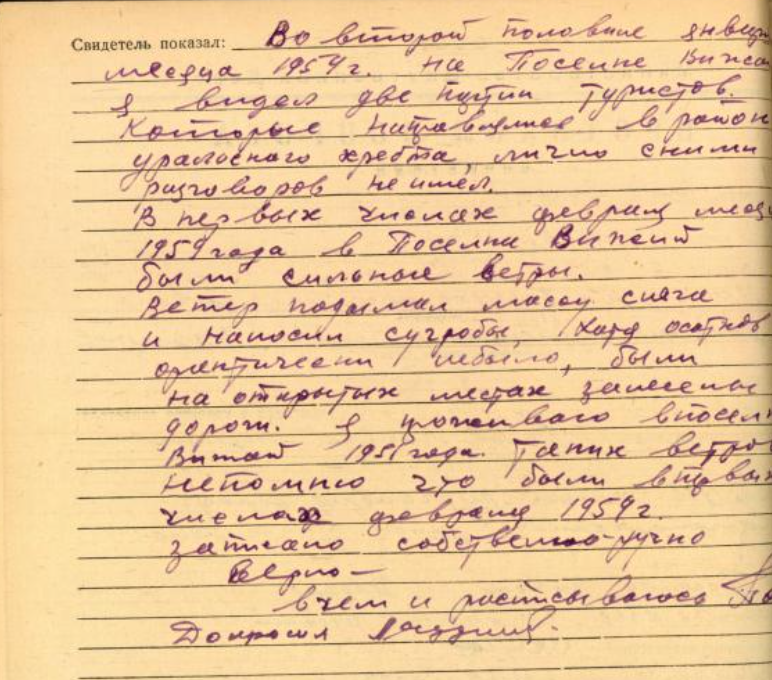 Свидетель показал: Во второй половине январ
месяца 1959 г. на Поселке Вижа
я видел две групы туристов.
Которые направлялись в район
уральского хребта, лично сними
разговоров неимел.
В первых числах февраля меся
1959 года в Поселке Вижай
были сильные ветры.
Ветер подымал массу снега
и наносил сугробы, Хотя осатков
фактически небыло, были
на открытых местах занесены
дороги. Я проживаю впосел
Вижай 1951 года. Таких ветров
непомню что были впервых
числах февраля 1959 г.
записано собственно-ручно
Верно —
вчем и росписываюсь
Допросил